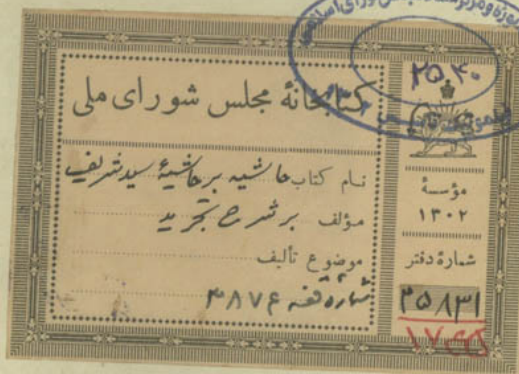 کتابخانهٔ مجلس شورای ملی
نام کتاب حاشیه بر حاشیهٔ سید شریف
مؤلف بر شرح تجرید
موضوع تألیف
شماره قفسه ۳۸۷۶
۲۵۰۴۰
مؤسسهٔ
۱۳۰۲
شمارهٔ دفتر
۲۵۸۳۱